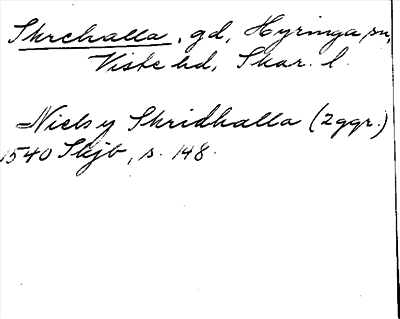 Skrehalla, gd, Hyringa sn,
Viste hd, Skar. l.
Niels y Skridhalla (2 ggr.)
1540 Skjb, s. 148.